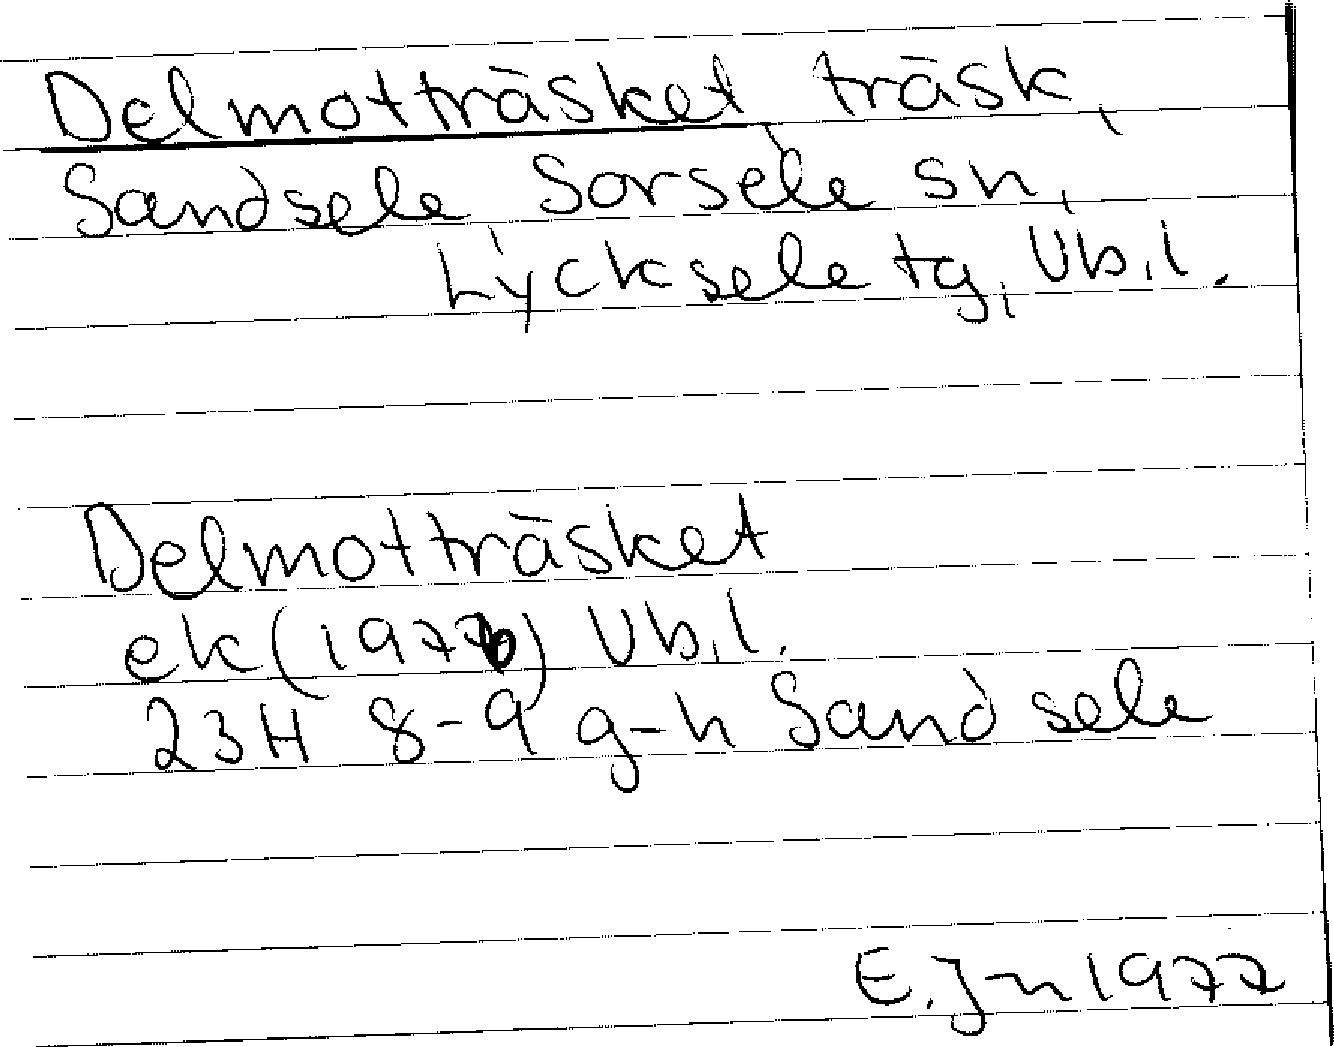 Delmotträsket träsk,
Sandsele Sorsele sn,
Lycksele tg, Vb.l.
Delmotträsket
ek (1976) Vb.l.
23H 8-9 g-h Sandsele
E. Jn 1977